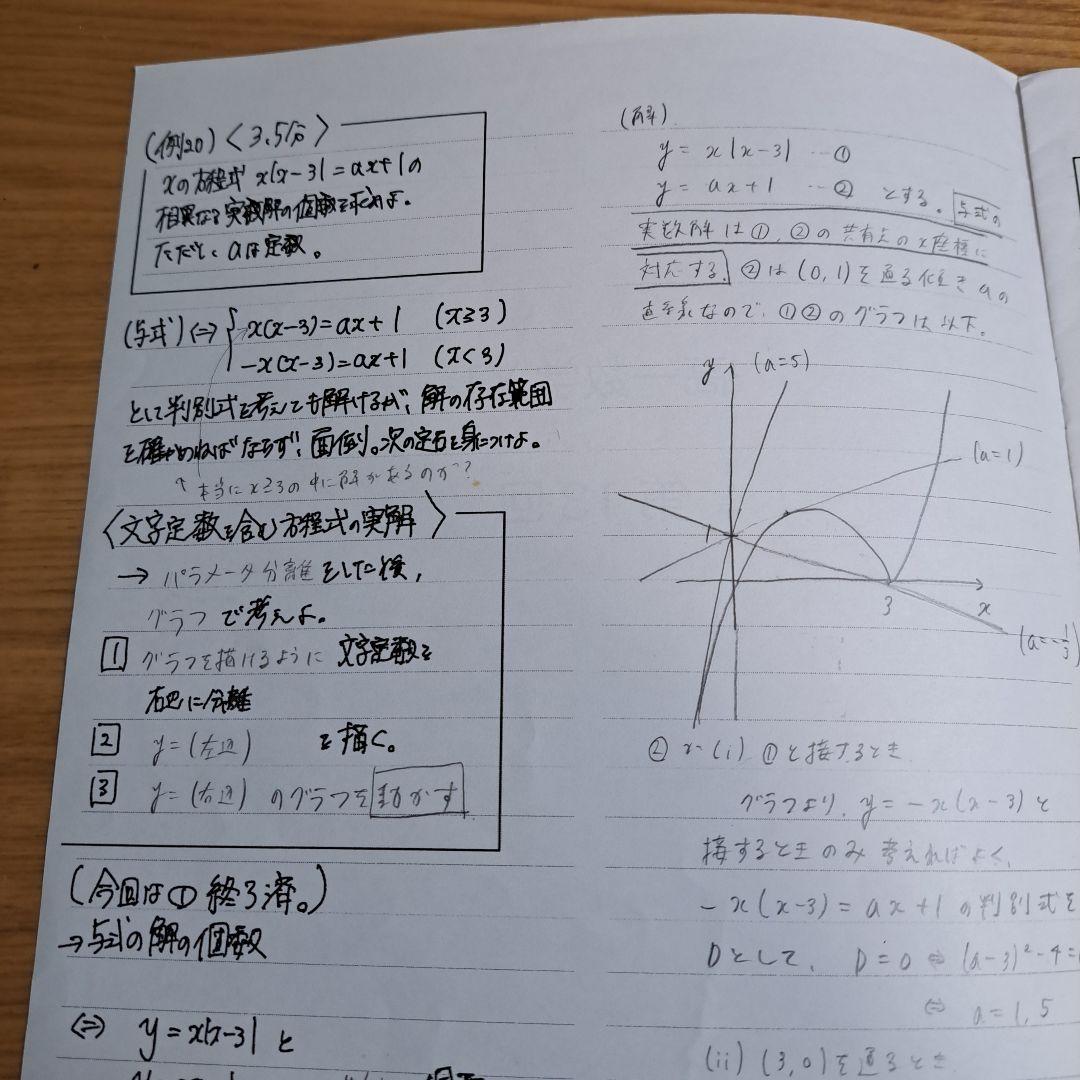 (例20) < 3.5分 >
xの方程式 x|x-3| = ax+1 の
相異なる実数解の個数を求めよ。
ただし、aは定数。
(与式) ⇔ { x(x-3) = ax+1 (x≧3)
-x(x-3) = ax+1 (x<3)
として判別式を考えても解けるが、解の存在範囲
を確かめねばならず、面倒。次の定石を身につけよ。
↑ 本当にx≧3の中に解があるのか?
〈文字定数を含む方程式の実解〉
→ パラメータ分離をした後,
グラフで考えよ。
1 グラフを描けるように 文字定数を
右辺に分離
2 y=(左辺) を描く。
3 y=(右辺) のグラフを動かす
(今回は① 終了済。)
→与式の解の個数
⇔ y = x|x-3| と
(解)
y = x|x-3| …①
y = ax+1 …② とする。与式の
実数解は①, ②の共有点のx座標に
対応する。②は(0, 1)を通る傾きaの
直線なので、①②のグラフは以下。
y (a=5)
(a=1)
1
3 x
(a=-1/3)
② が (i) ①と接するとき
グラフより, y = -x(x-3) と
接するときのみ考えればよく、
-x(x-3) = ax+1 の判別式を
Dとして、 D=0 ⇔ (a-3)²-4=
⇔ a=1, 5
(ii) (3, 0)を通るとき